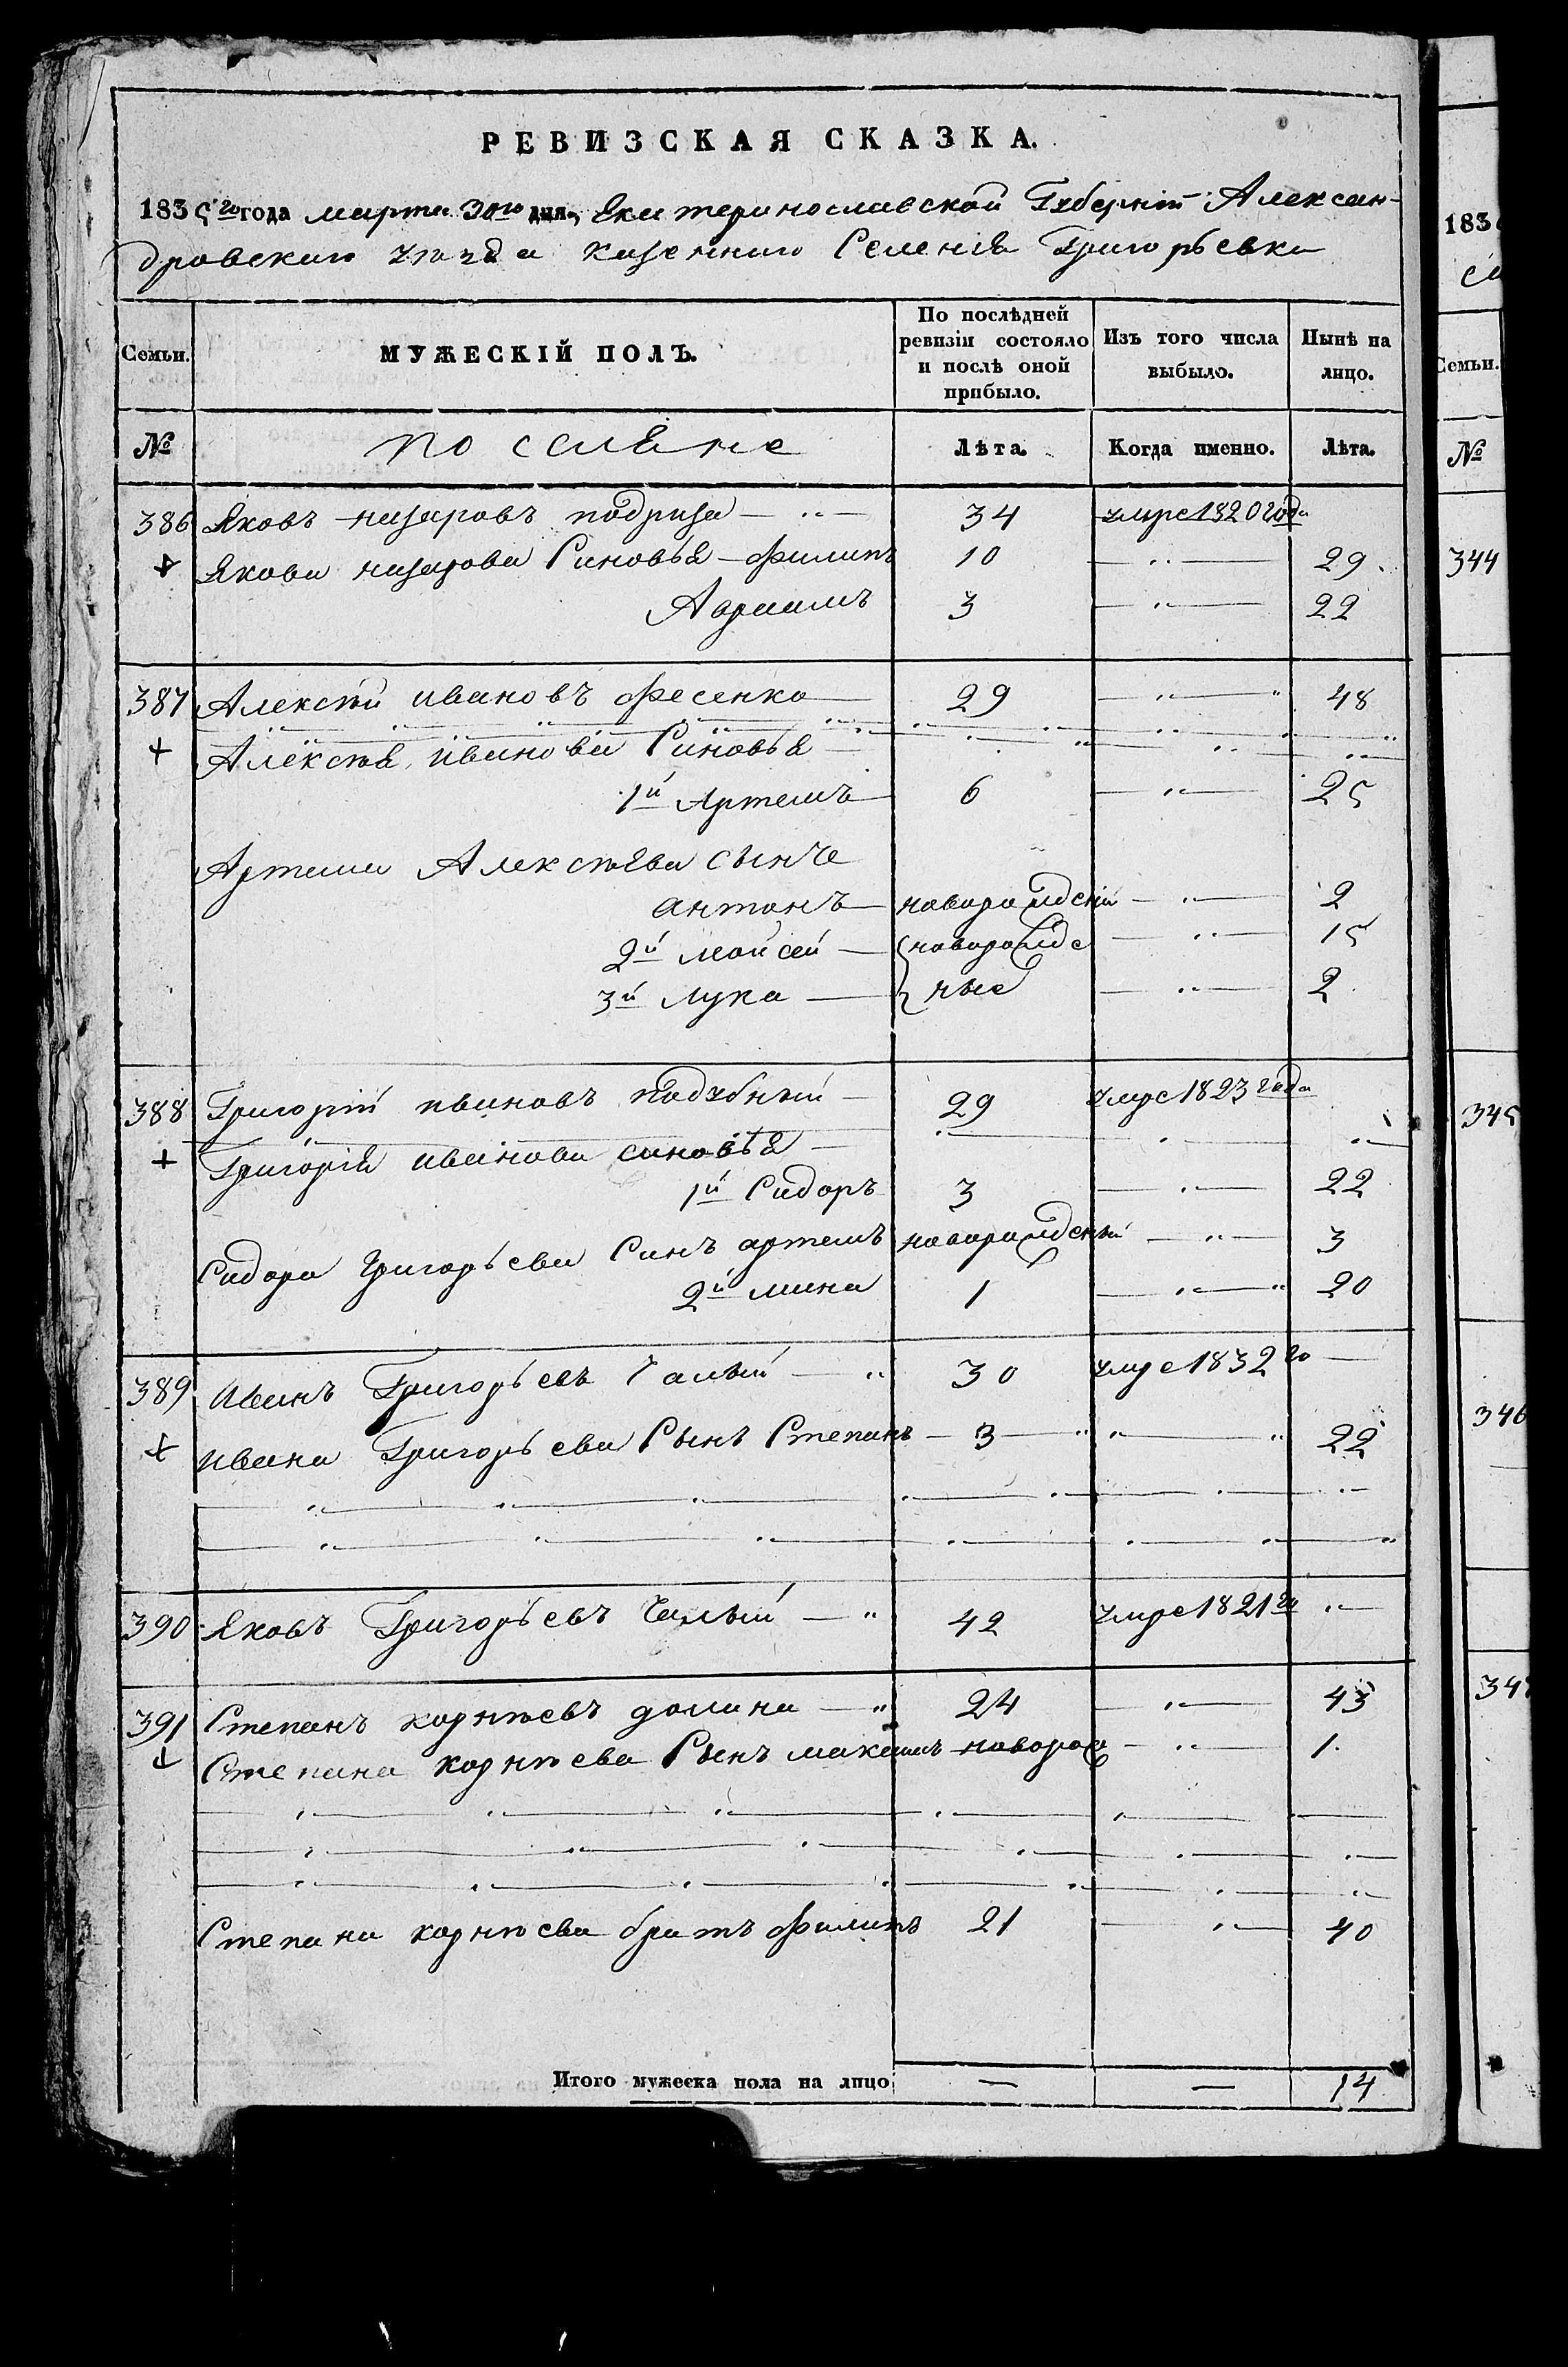 РЕВИЗСКАЯ СКАЗКА.
1835го года марта 30го дня, Екатеринославской Губерніи Алексан-
дровскаго уезда казенного Селенія Григорьевки
Семьи. МУЖЕСКІЙ ПОЛЪ. По послѣдней ревизіи состояло и послѣ оной прибыло. Изъ того числа выбыло. Нынѣ на лицо.
№ поселяне Лѣта. Когда именно. Лѣта.
386 Яковъ назаровъ подриза 34 умре 1820 года
Якова назарова Синовья филипъ 10 29
Авраамъ 3 22
387 Алексѣй ивановъ фесенко 29 48
Алексѣя иванова Синовья
1й Артемъ 6 25
Артема Алексѣева сынъ
антонъ новорожденій 2
2й мойсей новорожде 15
3й лука ные 2
388 Григорій ивановъ подубный 29 умре 1823 года
Григорія иванова синовья
1й Сидоръ 3 22
Сидора Григорьева Синъ артемъ новорожденый 3
2й мина 1 20
389 Иванъ Григорьевъ Чалый 30 умре 1832го
ивана Григорьева Сынъ Степанъ 3 22
390 Яковъ Григорьевъ Чалый 42 умре 1821го
391 Степанъ корнѣевъ долина 24 43
Степана корнѣева Сынъ максимъ новорож 1
Степана корнѣева братъ филипъ 21 40
Итого мужеска пола на лицо 14
183
Семьи.
№
344
345
346